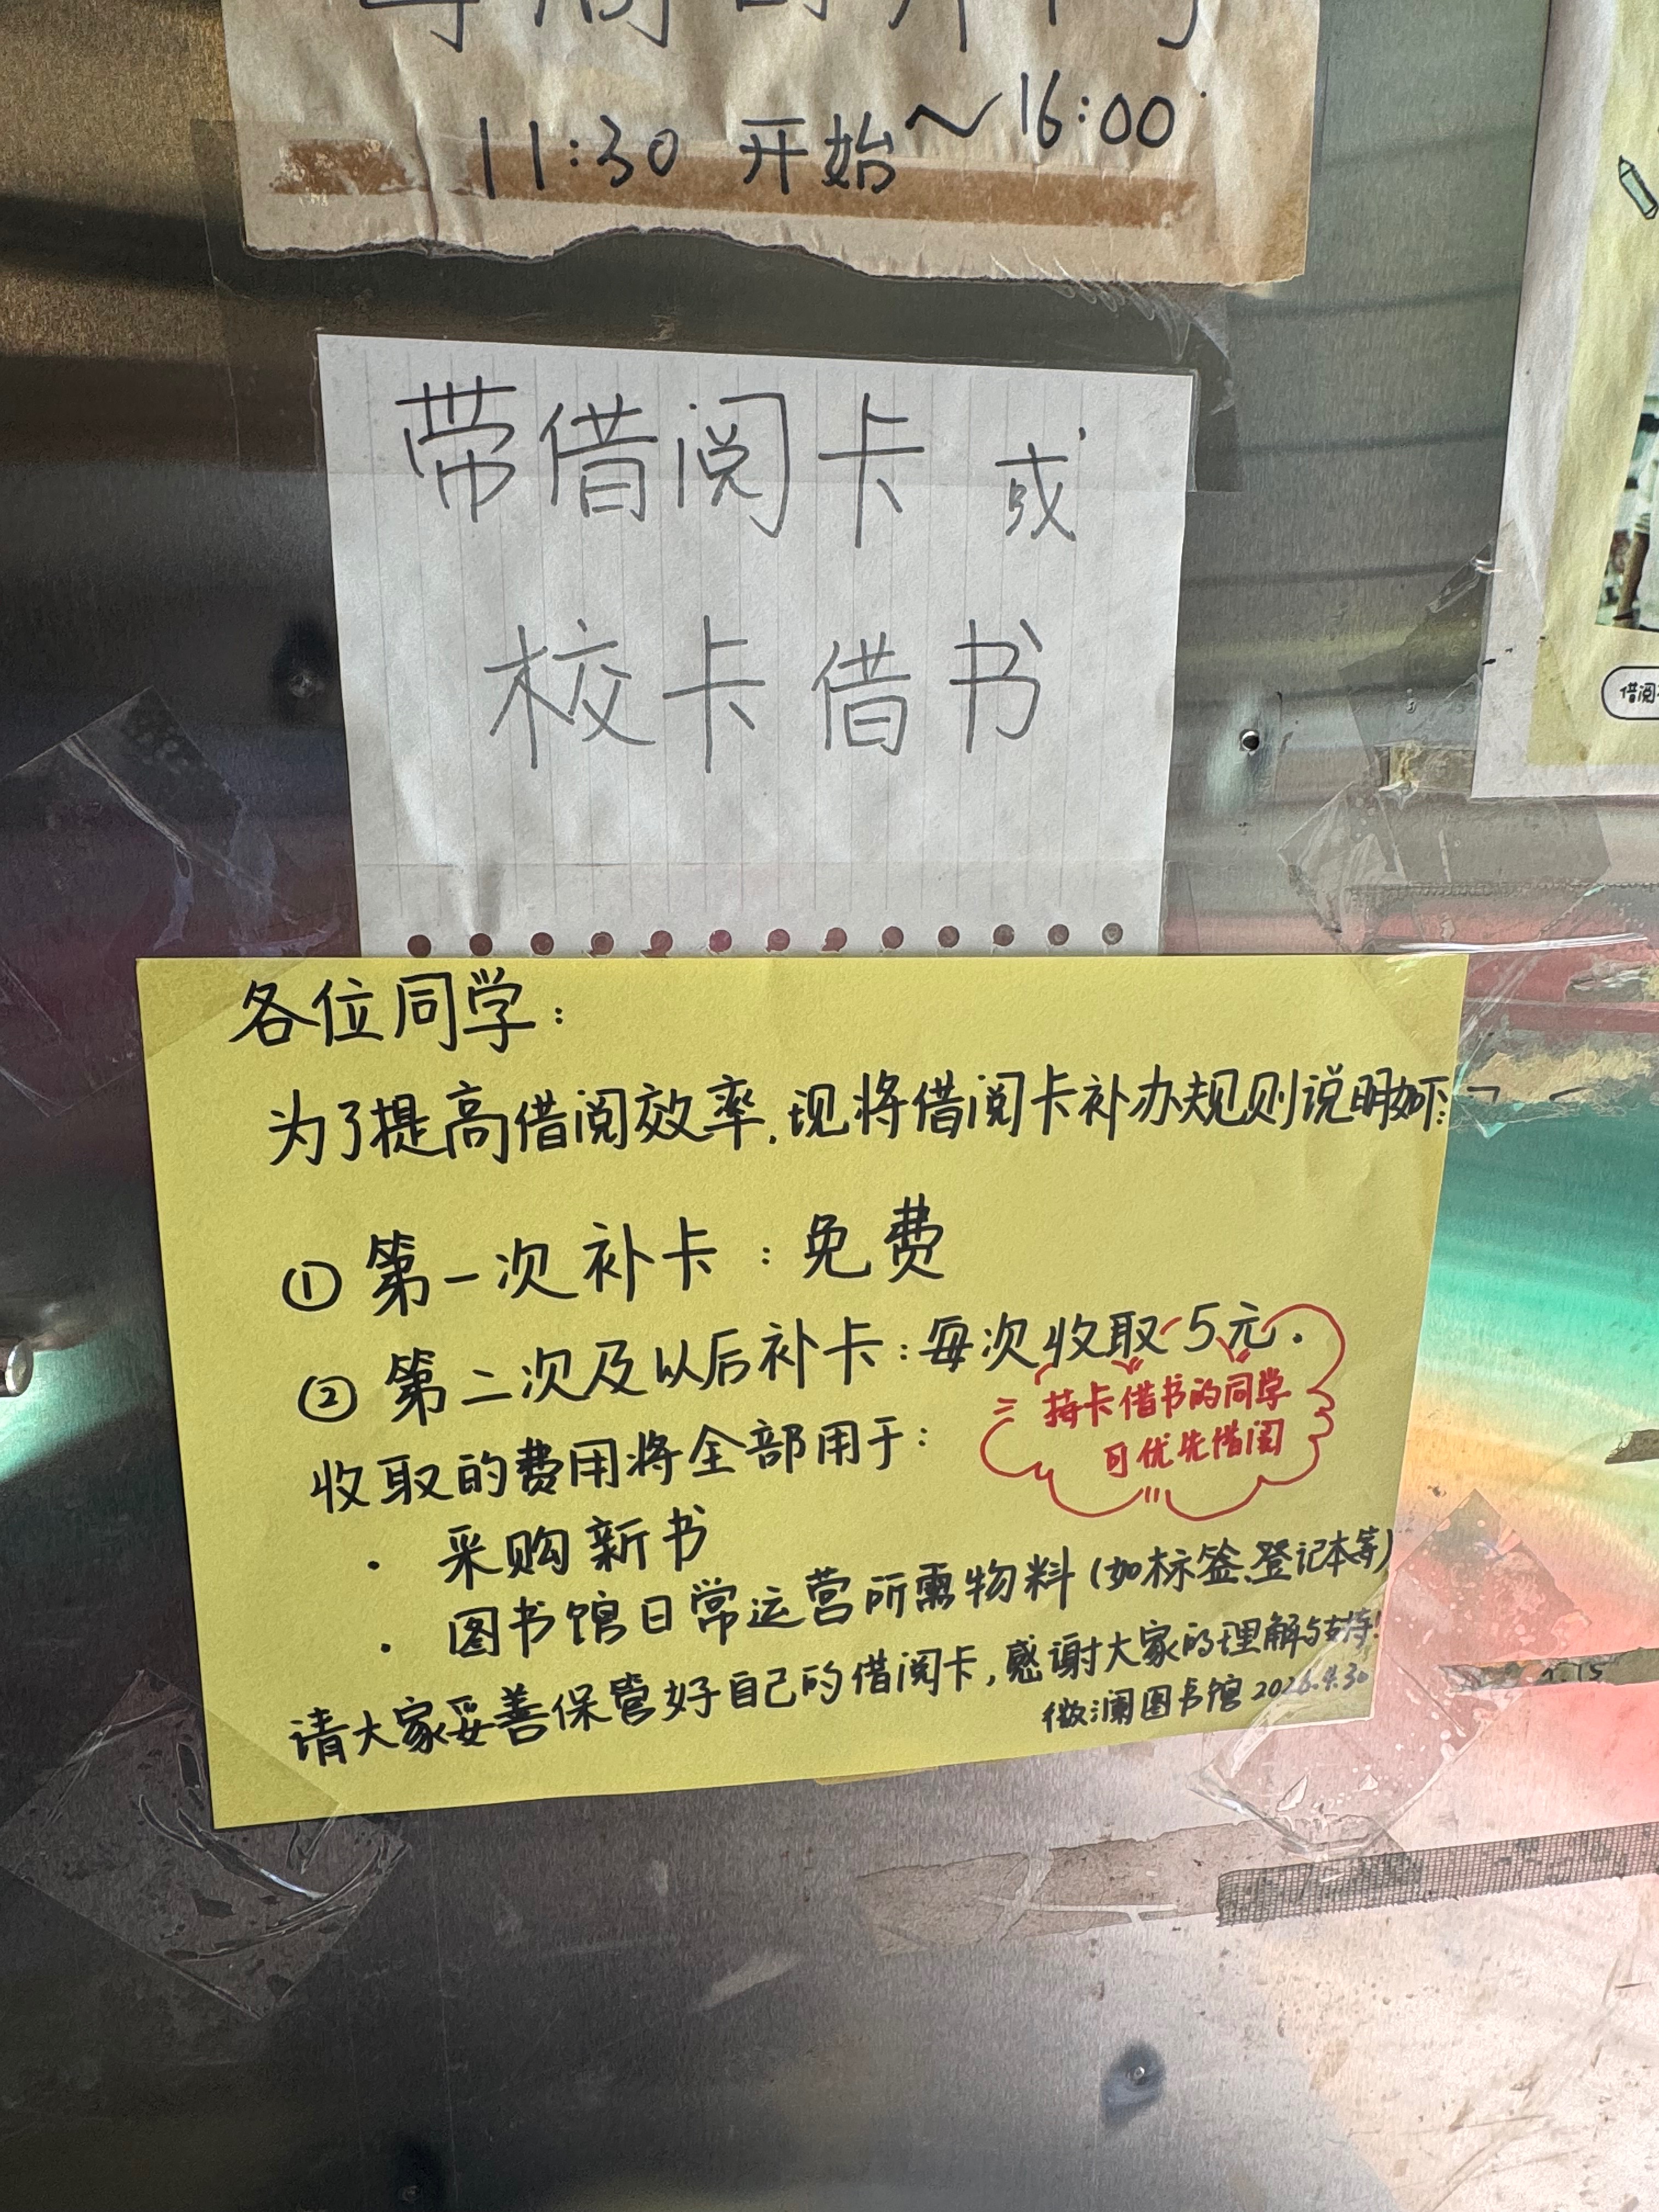 11:30 开始~16:00
带借阅卡或
校卡借书
各位同学:
为了提高借阅效率,现将借阅卡补办规则说明如下:
① 第一次补卡:免费
② 第二次及以后补卡:每次收取5元.
持卡借书的同学
可优先借阅
收取的费用将全部用于:
· 采购新书
· 图书馆日常运营所需物料(如标签、登记本等)
请大家妥善保管好自己的借阅卡,感谢大家的理解与支持!
微澜图书馆 2026.4.30
借阅